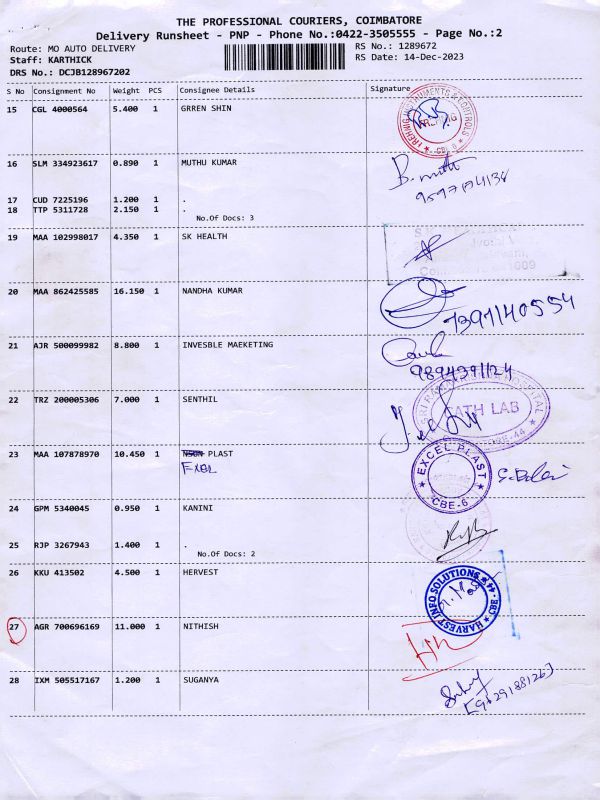 THE PROFESSIONAL COURIERS, COIMBATORE
Delivery Runsheet - PNP - Phone No.:0422-3505555 - Page No.:2
Route: MO AUTO DELIVERY RS No.: 1289672
Staff: KARTHICK RS Date: 14-Dec-2023
DRS No.: DCJB128967202
S No Consignment No Weight PCS Consignee Details Signature
15 CGL 4000564 5.400 1 GRREN SHIN
INSTRUMENTS & CONTROLS
16 SLM 334923617 0.890 1 MUTHU KUMAR
17 CUD 7225196 1.200 1 .
18 TTP 5311728 2.150 1 .
No.Of Docs: 3
19 MAA 102998017 4.350 1 SK HEALTH
20 MAA 862425585 16.150 1 NANDHA KUMAR
21 AJR 500099982 8.800 1 INVESBLE MAEKETING
9894291124
22 TRZ 200005306 7.000 1 SENTHIL
PATH LAB
23 MAA 107878970 10.450 1 PLAST
EXCEL PLAST
CBE-6
24 GPM 5340045 0.950 1 KANINI
25 RJP 3267943 1.400 1 .
No.Of Docs: 2
26 KKU 413502 4.500 1 HERVEST
HARVEST INFO SOLUTIONS
CBE-44
27 AGR 700696169 11.000 1 NITHISH
28 IXM 505517167 1.200 1 SUGANYA